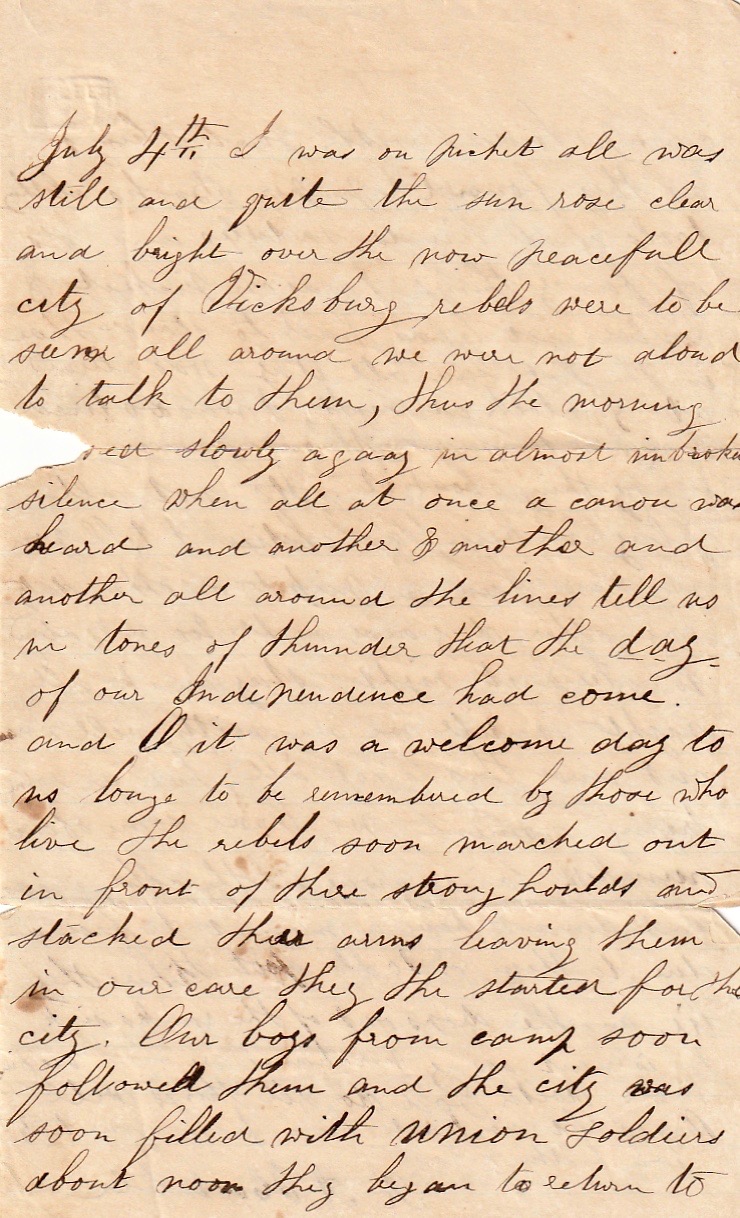 July 4th I was on picket all was
still and quite the sun rose clear
and bright over the now peacefull
city of Vicksburg rebels were to be
seen all around we were not aloud
to talk to them, thus the morning
slowly agaay in almost unbroken
silence when all at once a canon was
heard and another & another and
another all around the lines tell us
in tones of thunder that the day
of our Independence had come.
and O it was a welcome day to
us longe to be remembered by those who
live the rebels soon marched out
in front of there strong houlds and
stacked their arms leaving them
in our care they the started for the
city. Our boys from camp soon
followed them and the city was
soon filled with union soldiers
about noon they began to return to